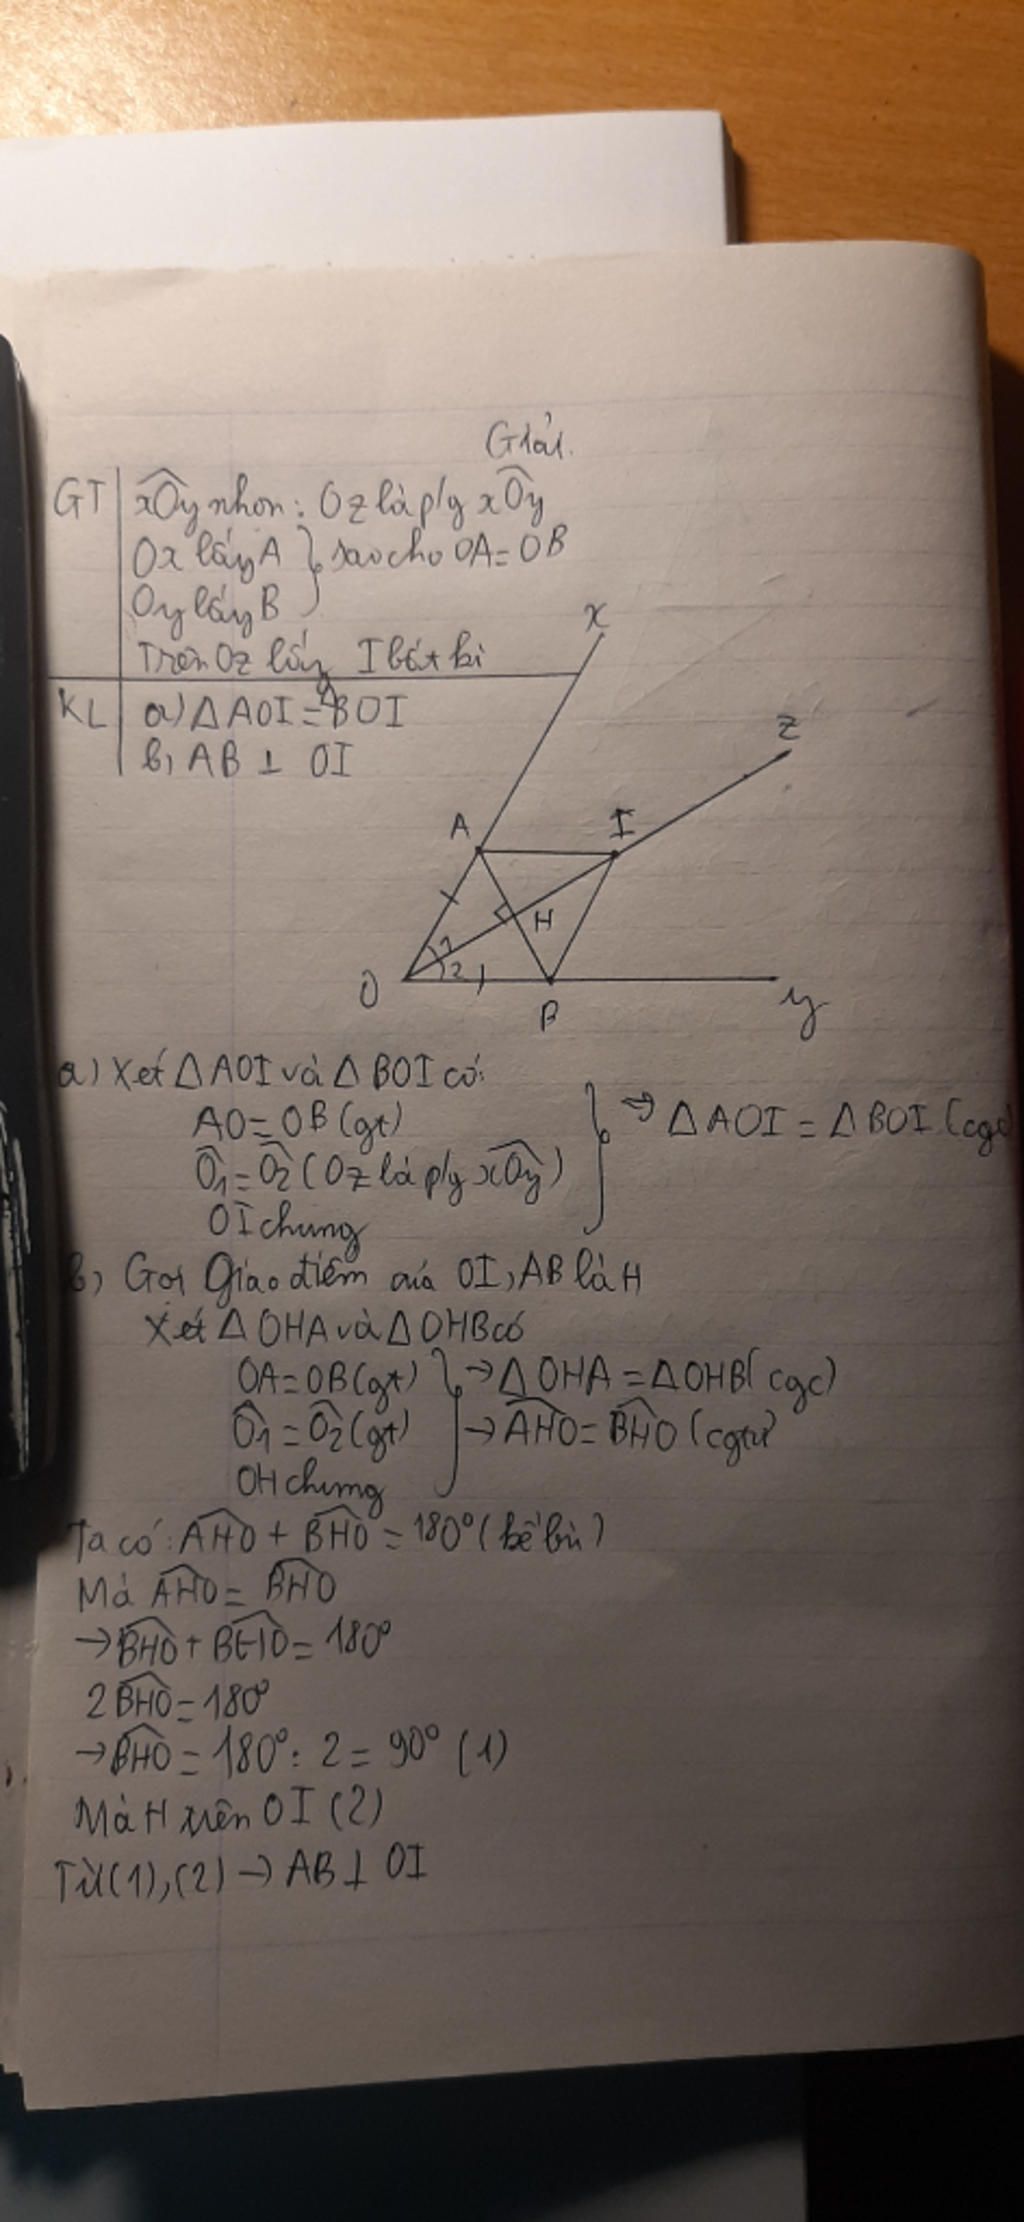 Giải.
GT xOy nhọn: Oz là p/g xOy
Ox lấy A } sao cho OA = OB
Oy lấy B
Trên Oz lấy I bất kì
KL a) △AOI = △BOI
b, AB ⊥ OI
x
z
A
I
H
1
2
O
B
y
a) Xét △AOI và △BOI có:
AO = OB (gt)
Ô1 = Ô2 (Oz là p/g xOy) } => △AOI = △BOI (cgc)
OI chung
b, Gọi giao điểm của OI, AB là H
Xét △OHA và △OHB có
OA = OB (gt) } → △OHA = △OHB (cgc)
Ô1 = Ô2 (gt) → AHO = BHO (cgtư)
OH chung
Ta có: AHO + BHO = 180° (kề bù)
Mà AHO = BHO
→ BHO + BHO = 180°
2 BHO = 180°
→ BHO = 180° : 2 = 90° (1)
Mà H trên OI (2)
Từ (1), (2) → AB ⊥ OI